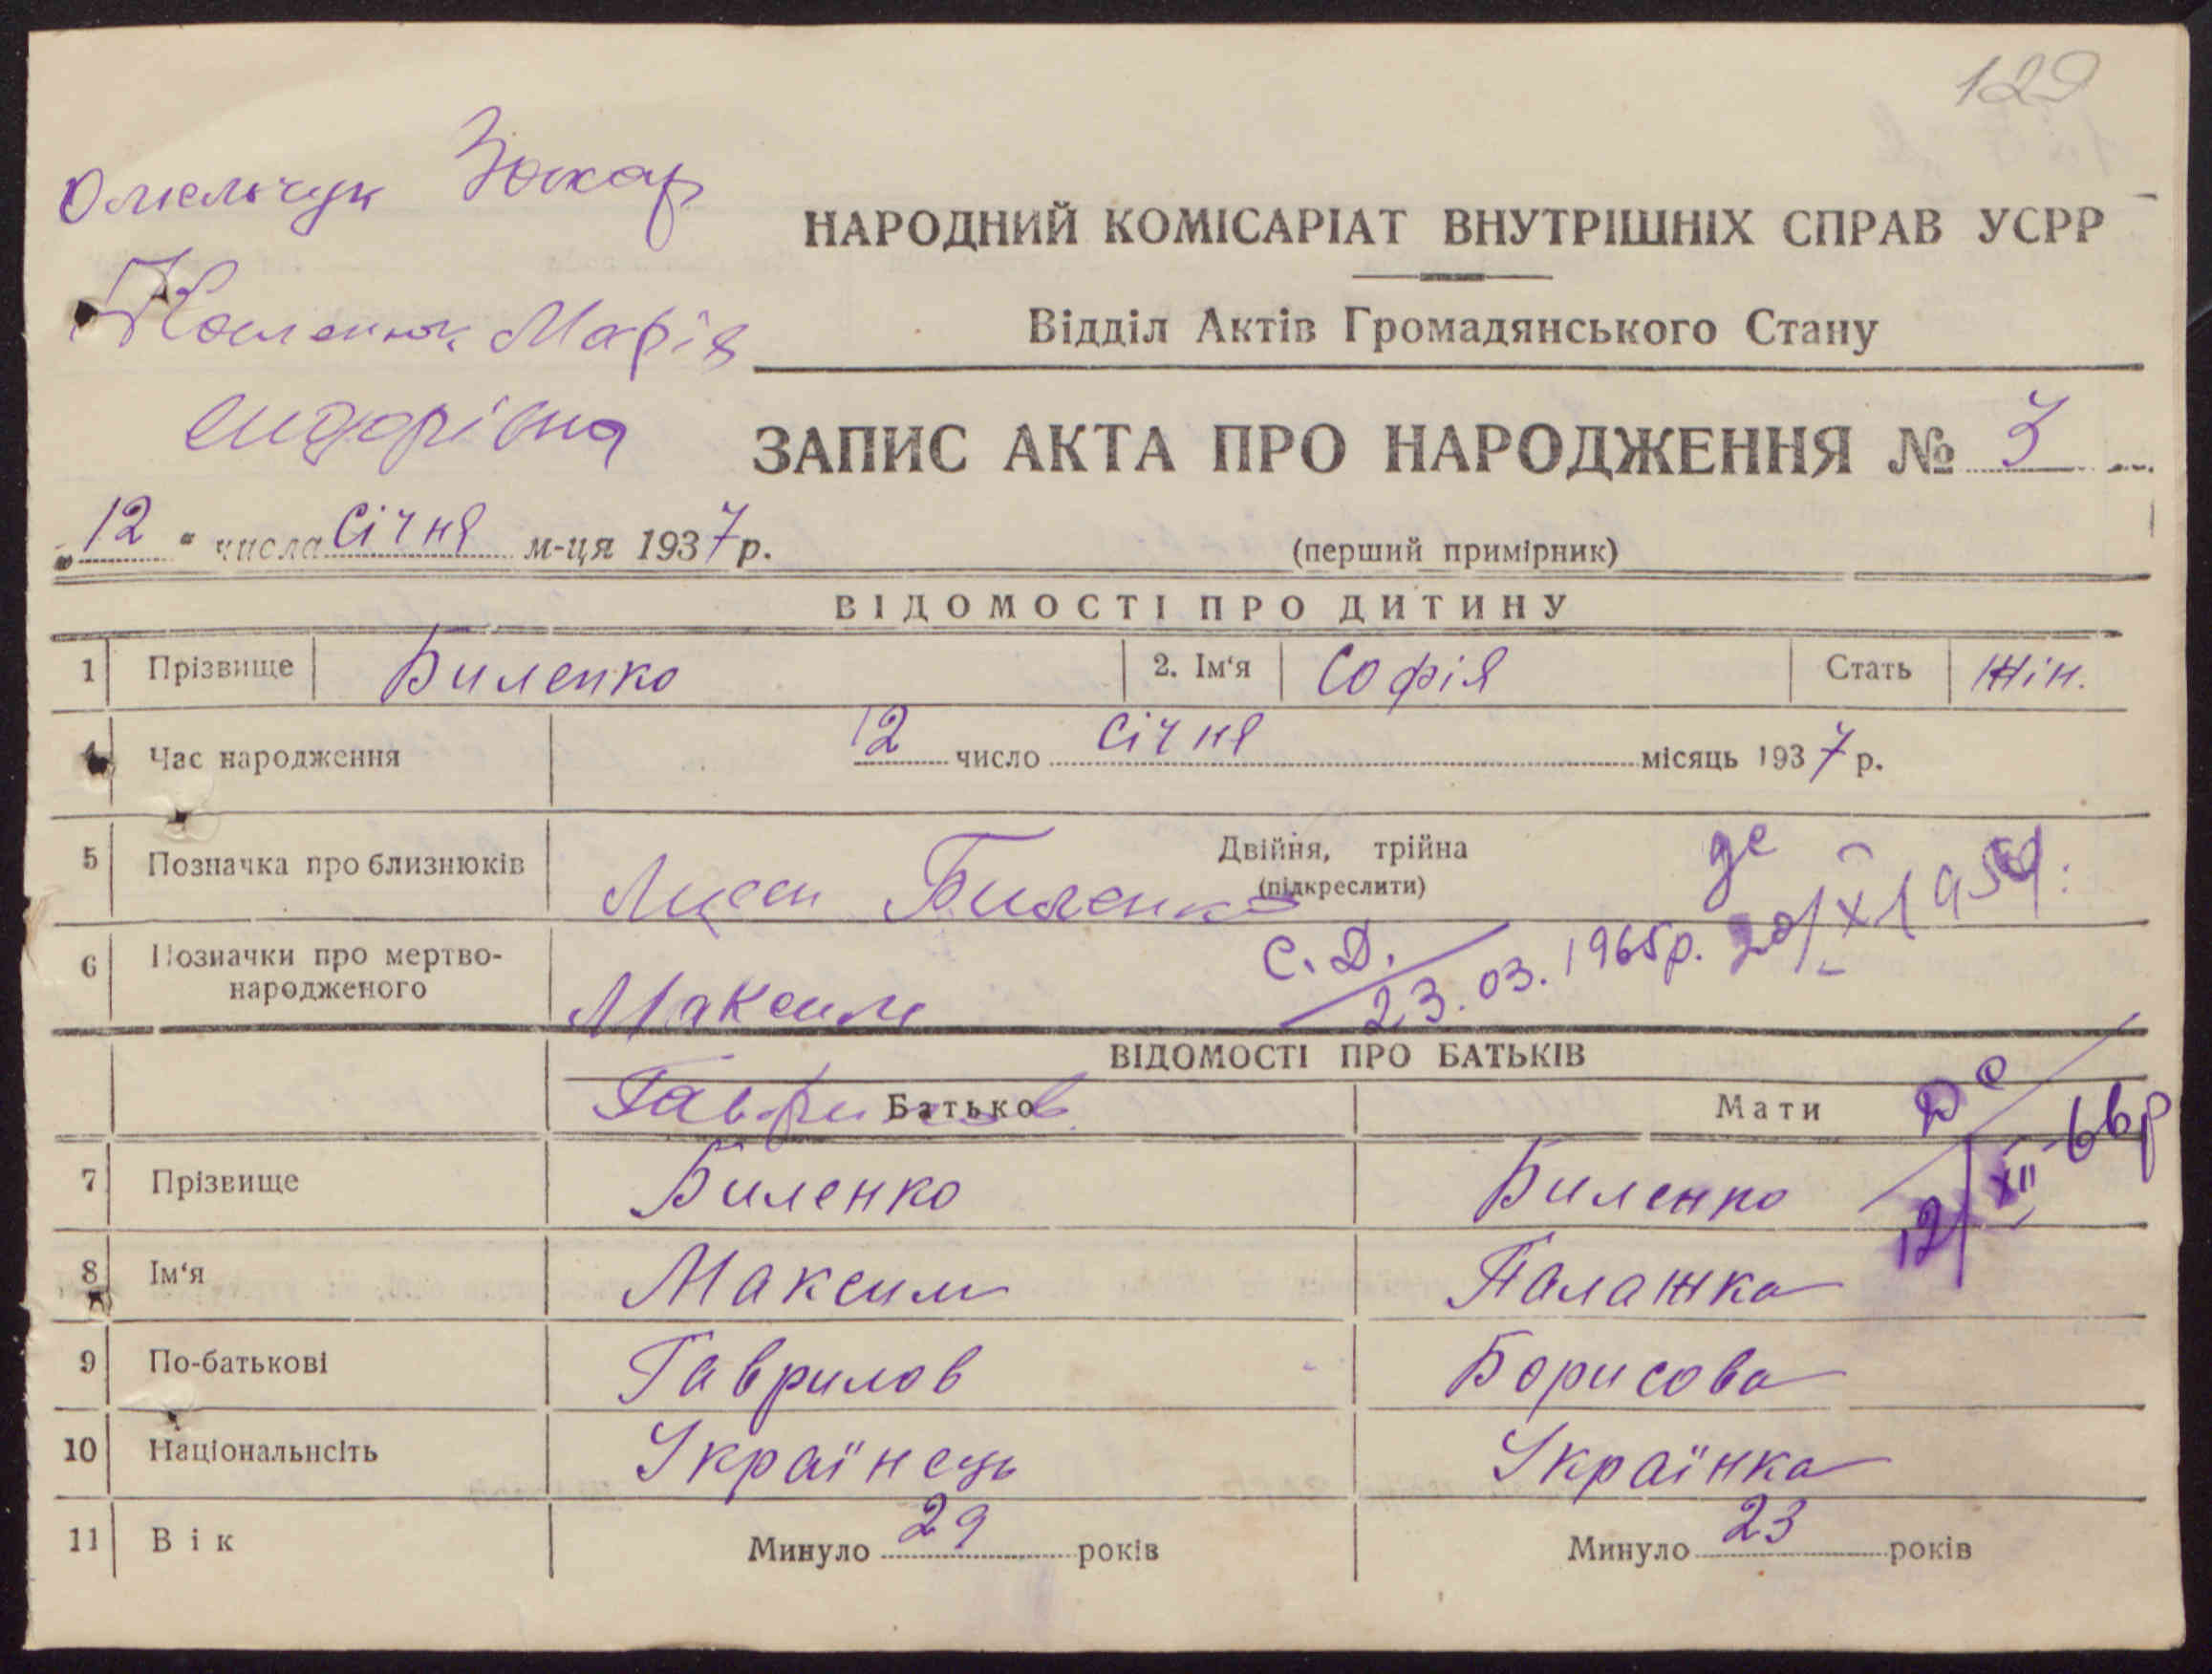 129
Омельчук Захар
Марія
Сидорівна
НАРОДНИЙ КОМІСАРІАТ ВНУТРІШНІХ СПРАВ УСРР
Відділ Актів Громадянського Стану
ЗАПИС АКТА ПРО НАРОДЖЕННЯ № 3
„12" числа Січня м-ця 1937 р.
(перший примірник)
ВІДОМОСТІ ПРО ДИТИНУ
1 Прізвище Биленко 2. Ім'я Софія Стать Жін.
4 Час народження 12 число Січня місяць 1937 р.
5 Позначка про близнюків Двійня, трійна
(підкреслити)
Биленко
де 20/XI 1959.
6 Позначки про мертво-
народженого
Максим
С. Д. / 23.03.1965р.
ВІДОМОСТІ ПРО БАТЬКІВ
Гаврилов
Батько Мати
Де / 12/XII 66р
7 Прізвище Биленко Биленко
8 Ім'я Максим Палажка
9 По-батькові Гаврилов Борисова
10 Національнсіть Українець Українка
11 Вік Минуло 29 років Минуло 23 років